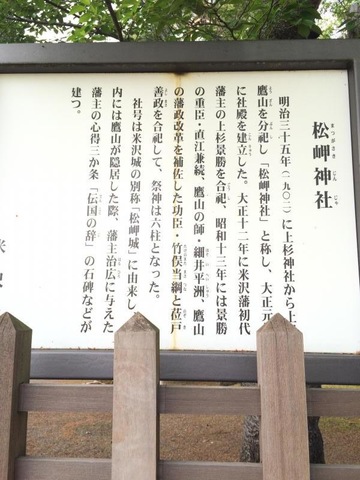 松岬神社
まつがさきじんじゃ
明治三十五年(一九〇二)に上杉神社から上
鷹山を分祀し、「松岬神社」と称し、大正元
に社殿を建立した。大正十二年に米沢藩初代
藩主の上杉景勝を合祀、昭和十三年には景勝
の重臣・直江兼続、鷹山の師・細井平洲、鷹山
の藩政改革を補佐した功臣・竹俣当綱と莅戸
善政を合祀して、祭神は六柱となった。
社号は米沢城の別称「松岬城」に由来し
内には鷹山が隠居した際、藩主治広に与えた
藩主の心得三か条「伝国の辞」の石碑などが
建つ。